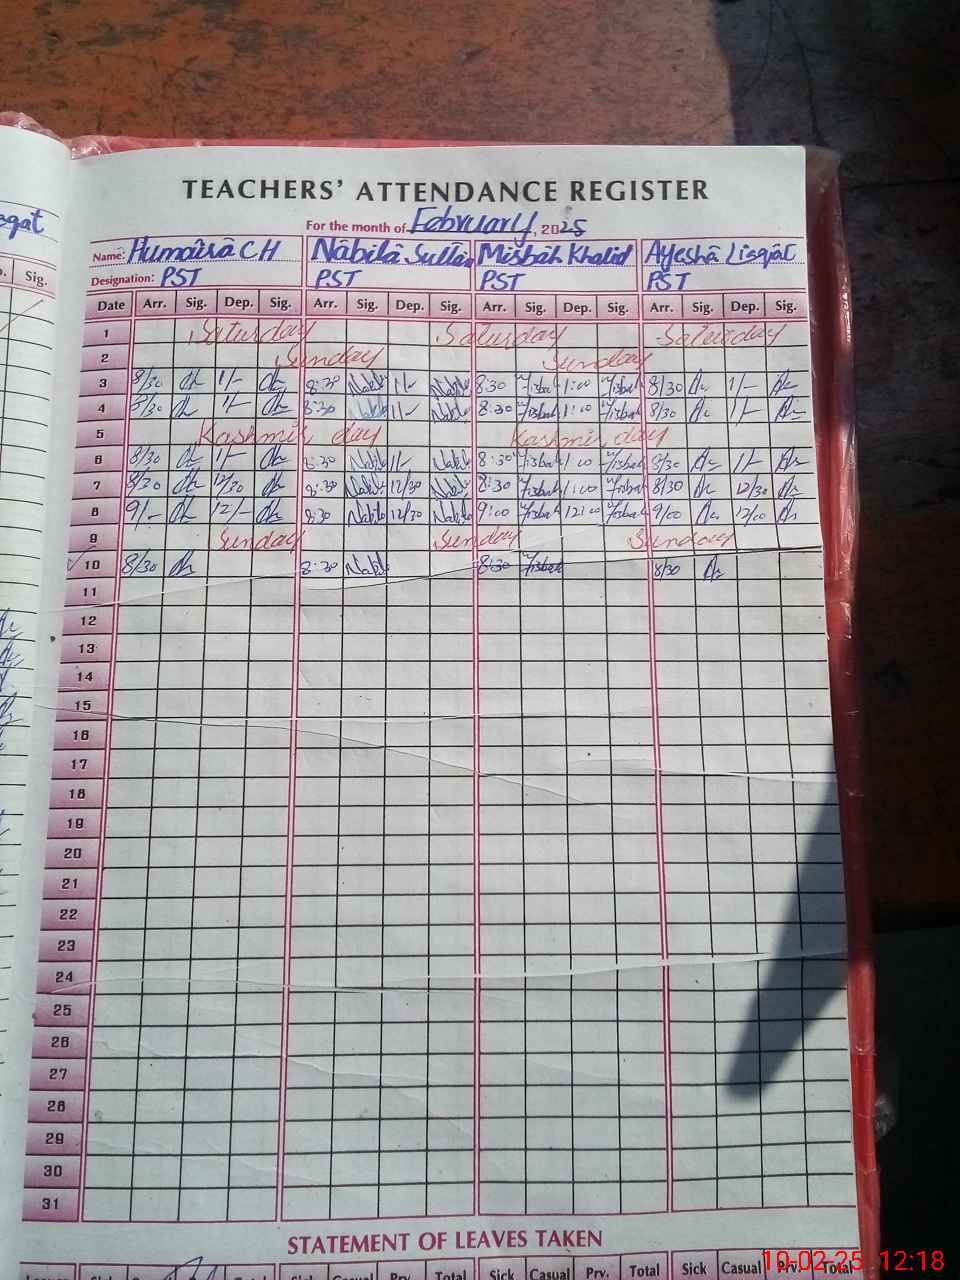 TEACHERS' ATTENDANCE REGISTER
For the month of February, 2025
Name: Humaira CH Nabila Sultan Misbah Khalid Ayesha Liaqat
Designation: PST PST PST PST
Date Arr. Sig. Dep. Sig. Arr. Sig. Dep. Sig. Arr. Sig. Dep. Sig. Arr. Sig. Dep. Sig.
1 Saturday Saturday Saturday
2 Sunday Sunday
3 8/30 1/- 8:30 Nabila 1/- Nabila 8:30 Misbah 1:00 Misbah 8/30 1/-
4 8/30 1/- 8:30 Nabila 1/- Nabila 8:30 Misbah 1:00 Misbah 8/30 1/-
5 Kashmir day Kashmir day
6 8/30 1/- 8:30 Nabila 1/- Nabila 8:30 Misbah 1:00 Misbah 8/30 1/-
7 8/30 12/30 8:30 Nabila 12/30 Nabila 8:30 Misbah 1:00 Misbah 8/30 12/30
8 9/- 12/- 8:30 Nabila 12/30 Nabila 9:00 Misbah 12:00 Misbah 9/00 12/00
9 Sunday Sunday Sunday
10 8/30 8:30 Nabila 8:30 Misbah 8/30
11
12
13
14
15
16
17
18
19
20
21
22
23
24
25
26
27
28
29
30
31
STATEMENT OF LEAVES TAKEN
Sick Casual Prv. Total Sick Casual Prv. Total
10-02-25 12:18